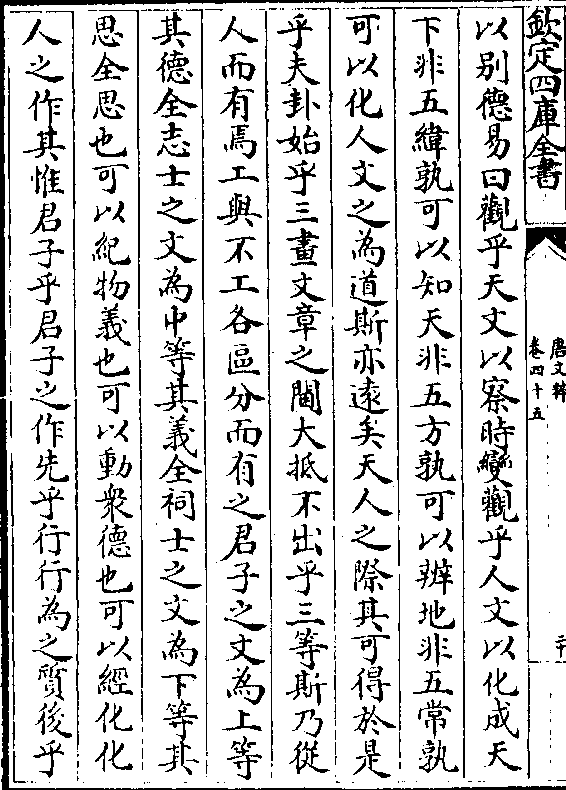 欽定四庫全書
唐文粹
卷四十五
二十
以别德易曰觀乎天文以察時變觀乎人文以化成天
下非五緯孰可以知天非五方孰可以辨地非五常孰
可以化人文之為道斯亦遠矣天人之際其可得於是
乎夫卦始乎三畫文章之閫大抵不出乎三等斯乃從
人而有焉工與不工各區分而有之君子之文為上等
其德全志士之文為中等其義全祠士之文為下等其
思全思也可以紀物義也可以動衆德也可以經化化
人之作其惟君子乎君子之作先乎行行為之質後乎